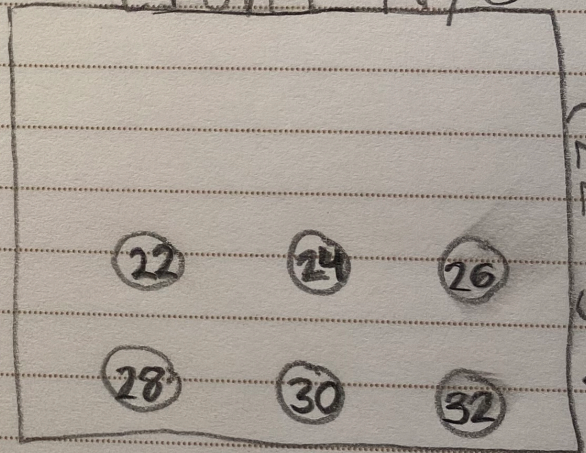 22 24 26
28 30 32